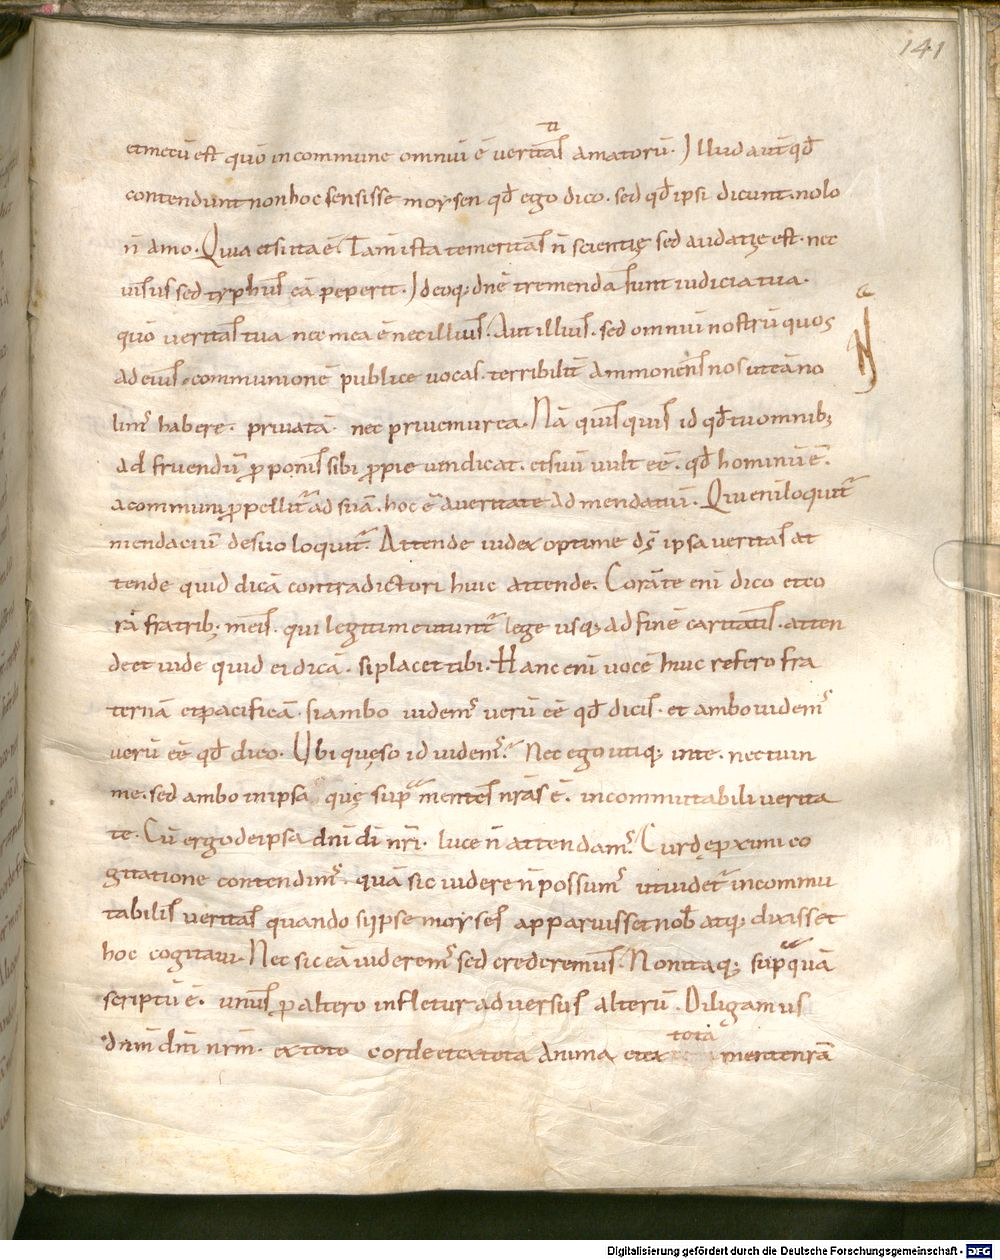 141
et meū est quō in commune omniū ē veritatis amatorū. Illud aūt qđ
contendunt non hoc sensisse moysen qđ ego dico. sed qđ ipsi dicunt. nolo
n̄ amo. Quia etsi ita ē. Tam̄ ista temeritas n̄ scientię sed audatię est. nec
visus sed typhus eā peperit. Ideoq; dn̄e tremenda sunt iudicia tua.
quō veritas tua nec mea ē nec illius. Aut illius. sed omniū nostrū quos
ad eius communionē publice vocas. terribilit̄ ammonens nos ut eā no
limˀ habere. privatā. nec privemur ea. Nā quisquis id qđ tu omnib;
ad fruendū ꝓponis sibi ꝓprie vindicat. et suū vult eē. qđ hominū ē.
a communi ꝓpellitˀ ad suā. hoc ē a veritate ad mendatiū. Qui eni loquitˀ
mendaciū de suo loquitˀ. Attende iudex optime dˉs ipsa veritas at
tende quid dicā contradictori huic attende. Corā te eni dico et co
rā fratrib; meis. qui legitime utuntˀ lege usq; ad finē caritatis. atten
de et vide quid ei dicā. si placet tibi. Hanc eni vocē huic refero fra
ternā et pacificā. si ambo videmˀ verū eē qđ dicis. et ambo videmˀ
verū eē qđ dico. Ubi quęso id videmˀ? Nec ego utiq; in te. nec tu in
me. sed ambo in ipsa quę supˉ mentes nr̄as ē. incommutabili verita
te. Cū ergo de ipsa dn̄i di nr̄i. luce n̄ attendamˀ. Cur de pximi co
gitatione contendimˀ. quā sic videre n̄ possumˀ ut videtˀ incommu
tabilis veritas quando si ipse moyses apparuisset nob̄ atq; dixisset
hoc cogitavi. Nec sic eā videremˀ sed crederemus. Non itaq; supˉ quā
scriptū ē. unus ꝓ altero infletur adversus alterū. Diligamus
dn̄m dm̄ nr̄m. ex toto corde et ex tota anima et ex tota mente nr̄a
Digitalisierung gefördert durch die Deutsche Forschungsgemeinschaft - DFG